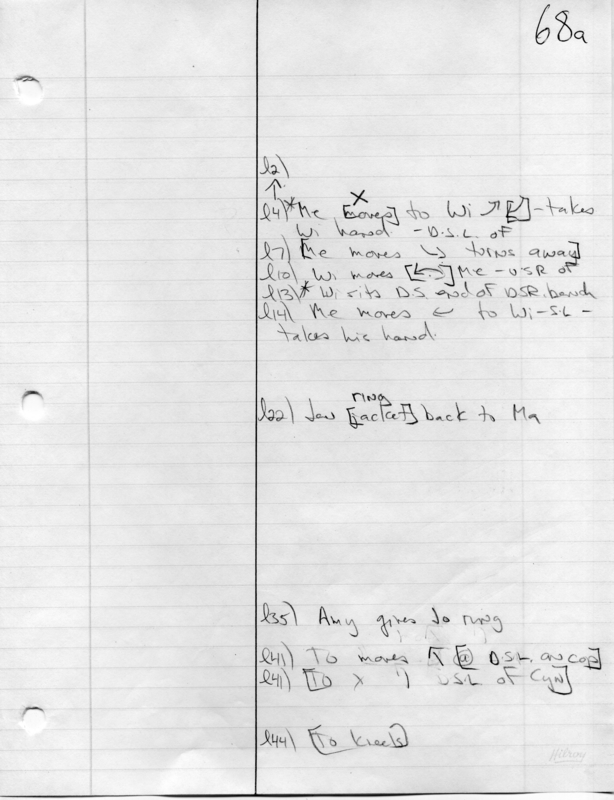 68a
l2)
↑
X
l4)*Me [moves] to Wi ↗ [↙] - takes
Wi hand - D.S.L. of
l7) [Me moves ↪ turns away]
l10) Wi moves Me - U.S.R of
l13)* Wi sits D.S. end of DSR bench
l14) Me moves ↩ to Wi - S.L -
takes his hand.
ring
l22) [jacket] back to Ma
l35) Amy gives Jo ring
l41) To moves ↖ [@ D.S.L.
l41) [To S.L of Cyn]
l44) [To kneels]
Hilroy